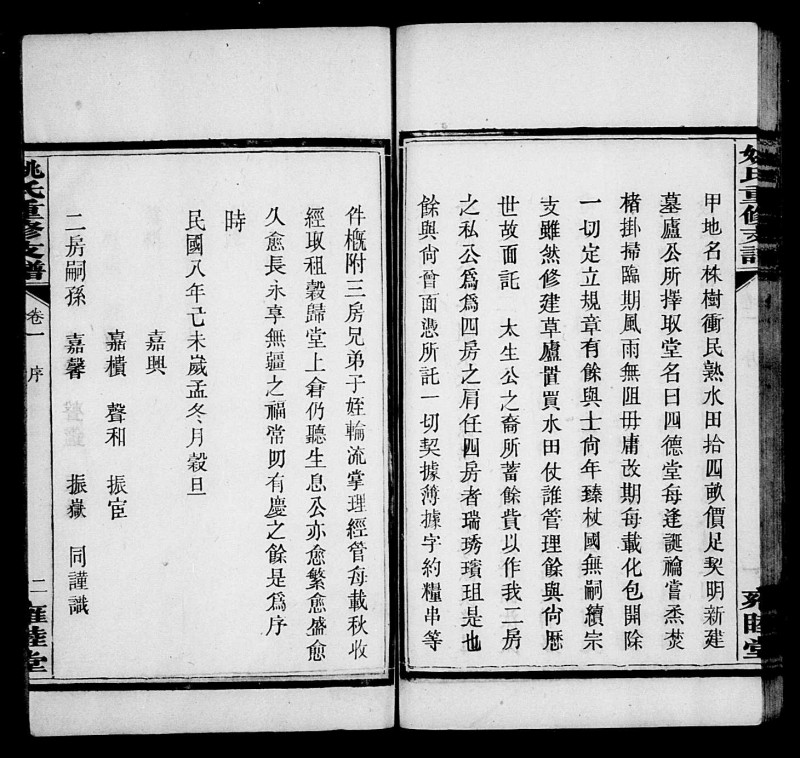 姚氏重修支譜
雍睦堂
甲地名株樹衝民熟水田拾四畝價足契明新建
墓廬公所擇取堂名曰四德堂每逢誕禴嘗烝焚
楮掛掃臨期風雨無阻毋庸改期每載化包開除
一切定立規章有餘與士尙年臻杖國無嗣續宗
支雖然修建草廬置買水田仗誰管理餘與尙厯
世故面託 太生公之裔所蓄餘貲以作我二房
之私公爲爲四房之肩任四房者瑞琇璸珇是也
餘與尙曾面憑所託一切契據簿據字約糧串等
件槪附三房兄弟子姪輪流掌理經管每載秋收
經取租穀歸堂上倉仍聽生息公亦愈繁愈盛愈
久愈長永享無疆之福常叨有慶之餘是爲序
時
民國八年己未歲孟冬月穀旦
嘉興
嘉樻 聲和 振宦
二房嗣孫 嘉馨 振嶽 同謹識
姚氏重修支譜
卷一 序
二
雍睦堂